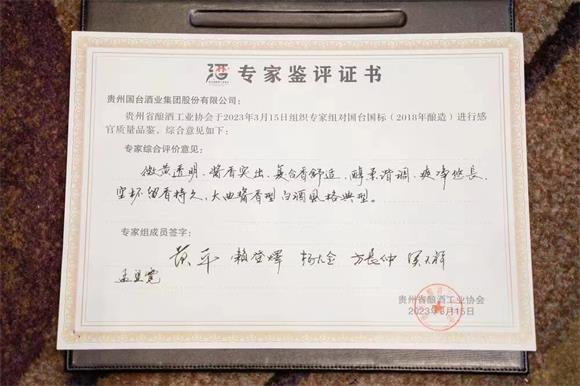 专家鉴评证书
贵州国台酒业集团股份有限公司：
贵州省酿酒工业协会于2023年3月15日组织专家组对国台国标（2018年酿造）进行感
官质量品鉴。综合意见如下：
专家综合评价意见：
微黄透明、酱香突出、复合香舒适、醇柔谐调、爽净悠长、
空杯留香持久，大曲酱香型白酒风格典型。
专家组成员签字：
黄平 赖登燡 杨大金 方长仲
贵州省酿酒工业协会
2023年3月15日